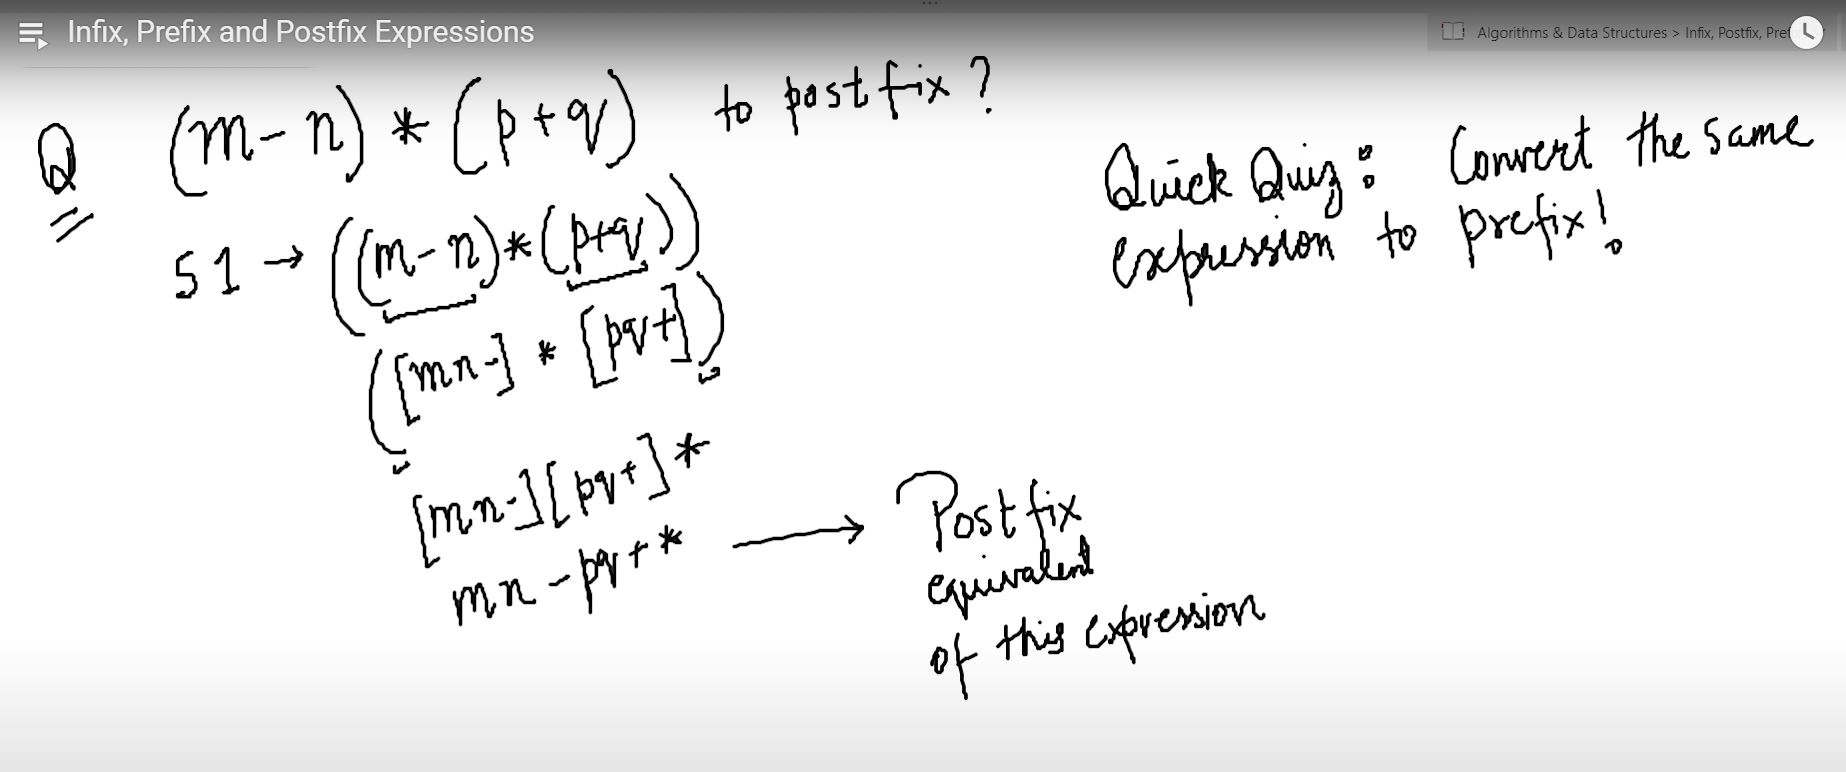 Infix, Prefix and Postfix Expressions
Algorithms & Data Structures > Infix, Postfix, Pref
Q (m - n) * (p + q) to postfix?
S1 → ((m - n) * (p+q))
([mn-] * [pq+])
[mn-][pq+]*
mn - pq + * → Postfix
equivalent
of this expression
Quick Quiz: Convert the same
expression to prefix!